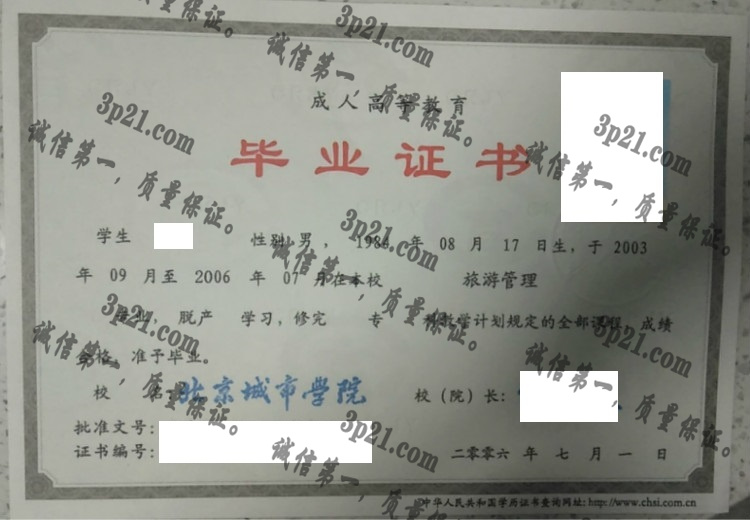 成人高等教育
毕业证书
学生 性别 男 , 1984 年 08 月 17 日生，于 2003
年 09 月至 2006 年 07 月在本校 旅游管理
专业，脱产 学习，修完 专 科教学计划规定的全部课程，成绩
合格，准予毕业。
校 名：北京城市学院 校（院）长：
批准文号：
证书编号： 二〇〇六 年 七 月 一 日
中华人民共和国学历证书查询网址：http://www.chsi.com.cn
3p21.com
诚信第一，质量保证。
3p21.com
诚信第一，质量保证。
3p21.com
诚信第一，质量保证。
3p21.com
诚信第一，质量保证。
3p21.com
诚信第一，质量保证。
3p21.com
诚信第一，质量保证。
3p21.com
诚信第一，质量保证。